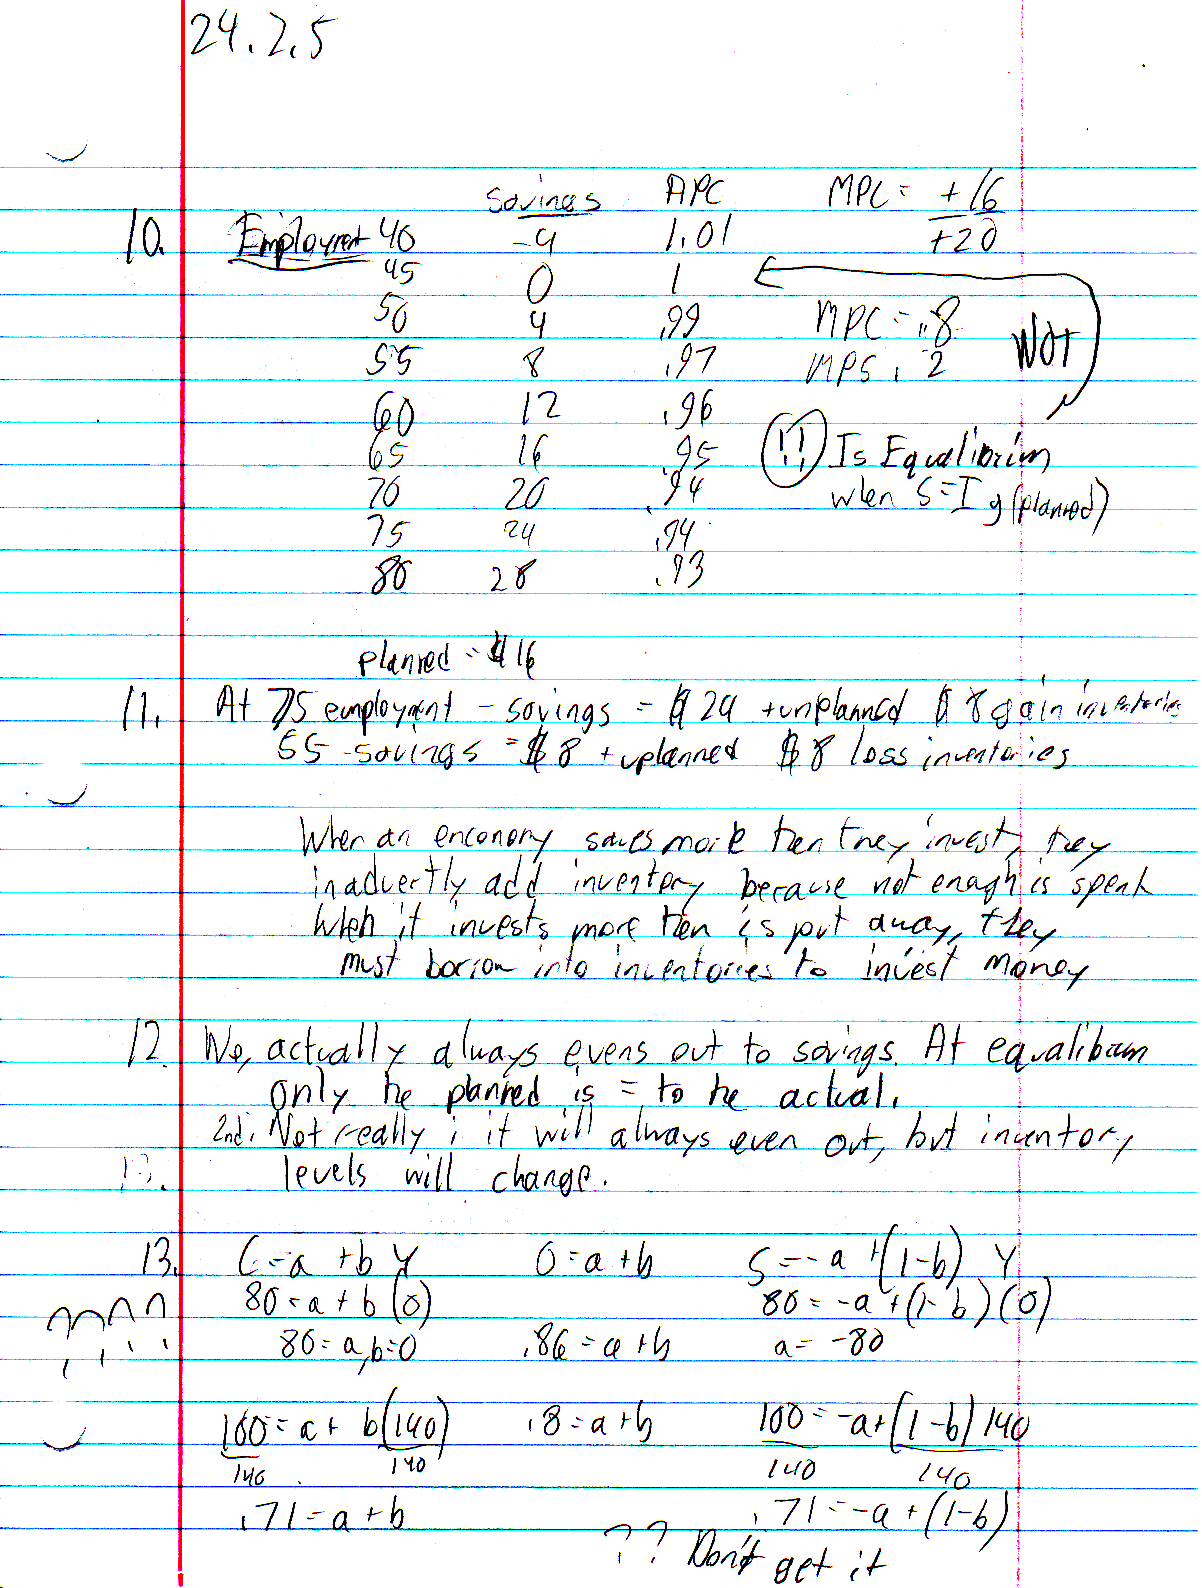 24.2.5
Savings APC MPC = +16
10. Employment 40 -4 1.01 +20
45 0 1
50 4 .99 MPC = .8
55 8 .97 MPS .2 NOT
60 12 .96
65 16 .95 (!!) Is Equalibrium
70 20 .94 when S=Ig (planned)
75 24 .94
80 28 .93
planned = $16
11. At 75 employment - savings = $24 + unplanned $8 gain inventories
55 - savings = $8 + uplanned $8 loss inventories
When an enconomy saves more then they invest, they
inadvertly add inventory because not enough is spent
When it invests more then is put away, they
must borrow into inventories to invest money
12. No, actually always evens out to savings. At equalibium
only the planned is = to the actual.
2nd. Not really; it will always even out, but inventory
13. levels will change.
13. C=a +b Y 0=a+b S=-a+(1-b) Y
80=a+b(0) 80=-a+(1-b)(0)
80=a, b=0 .86=a+b a=-80
100=a+ b(140) .8=a+b 100=-a+(1-b)140
140 140 140 140
.71=a+b .71=-a+(1-b)
?? Don't get it